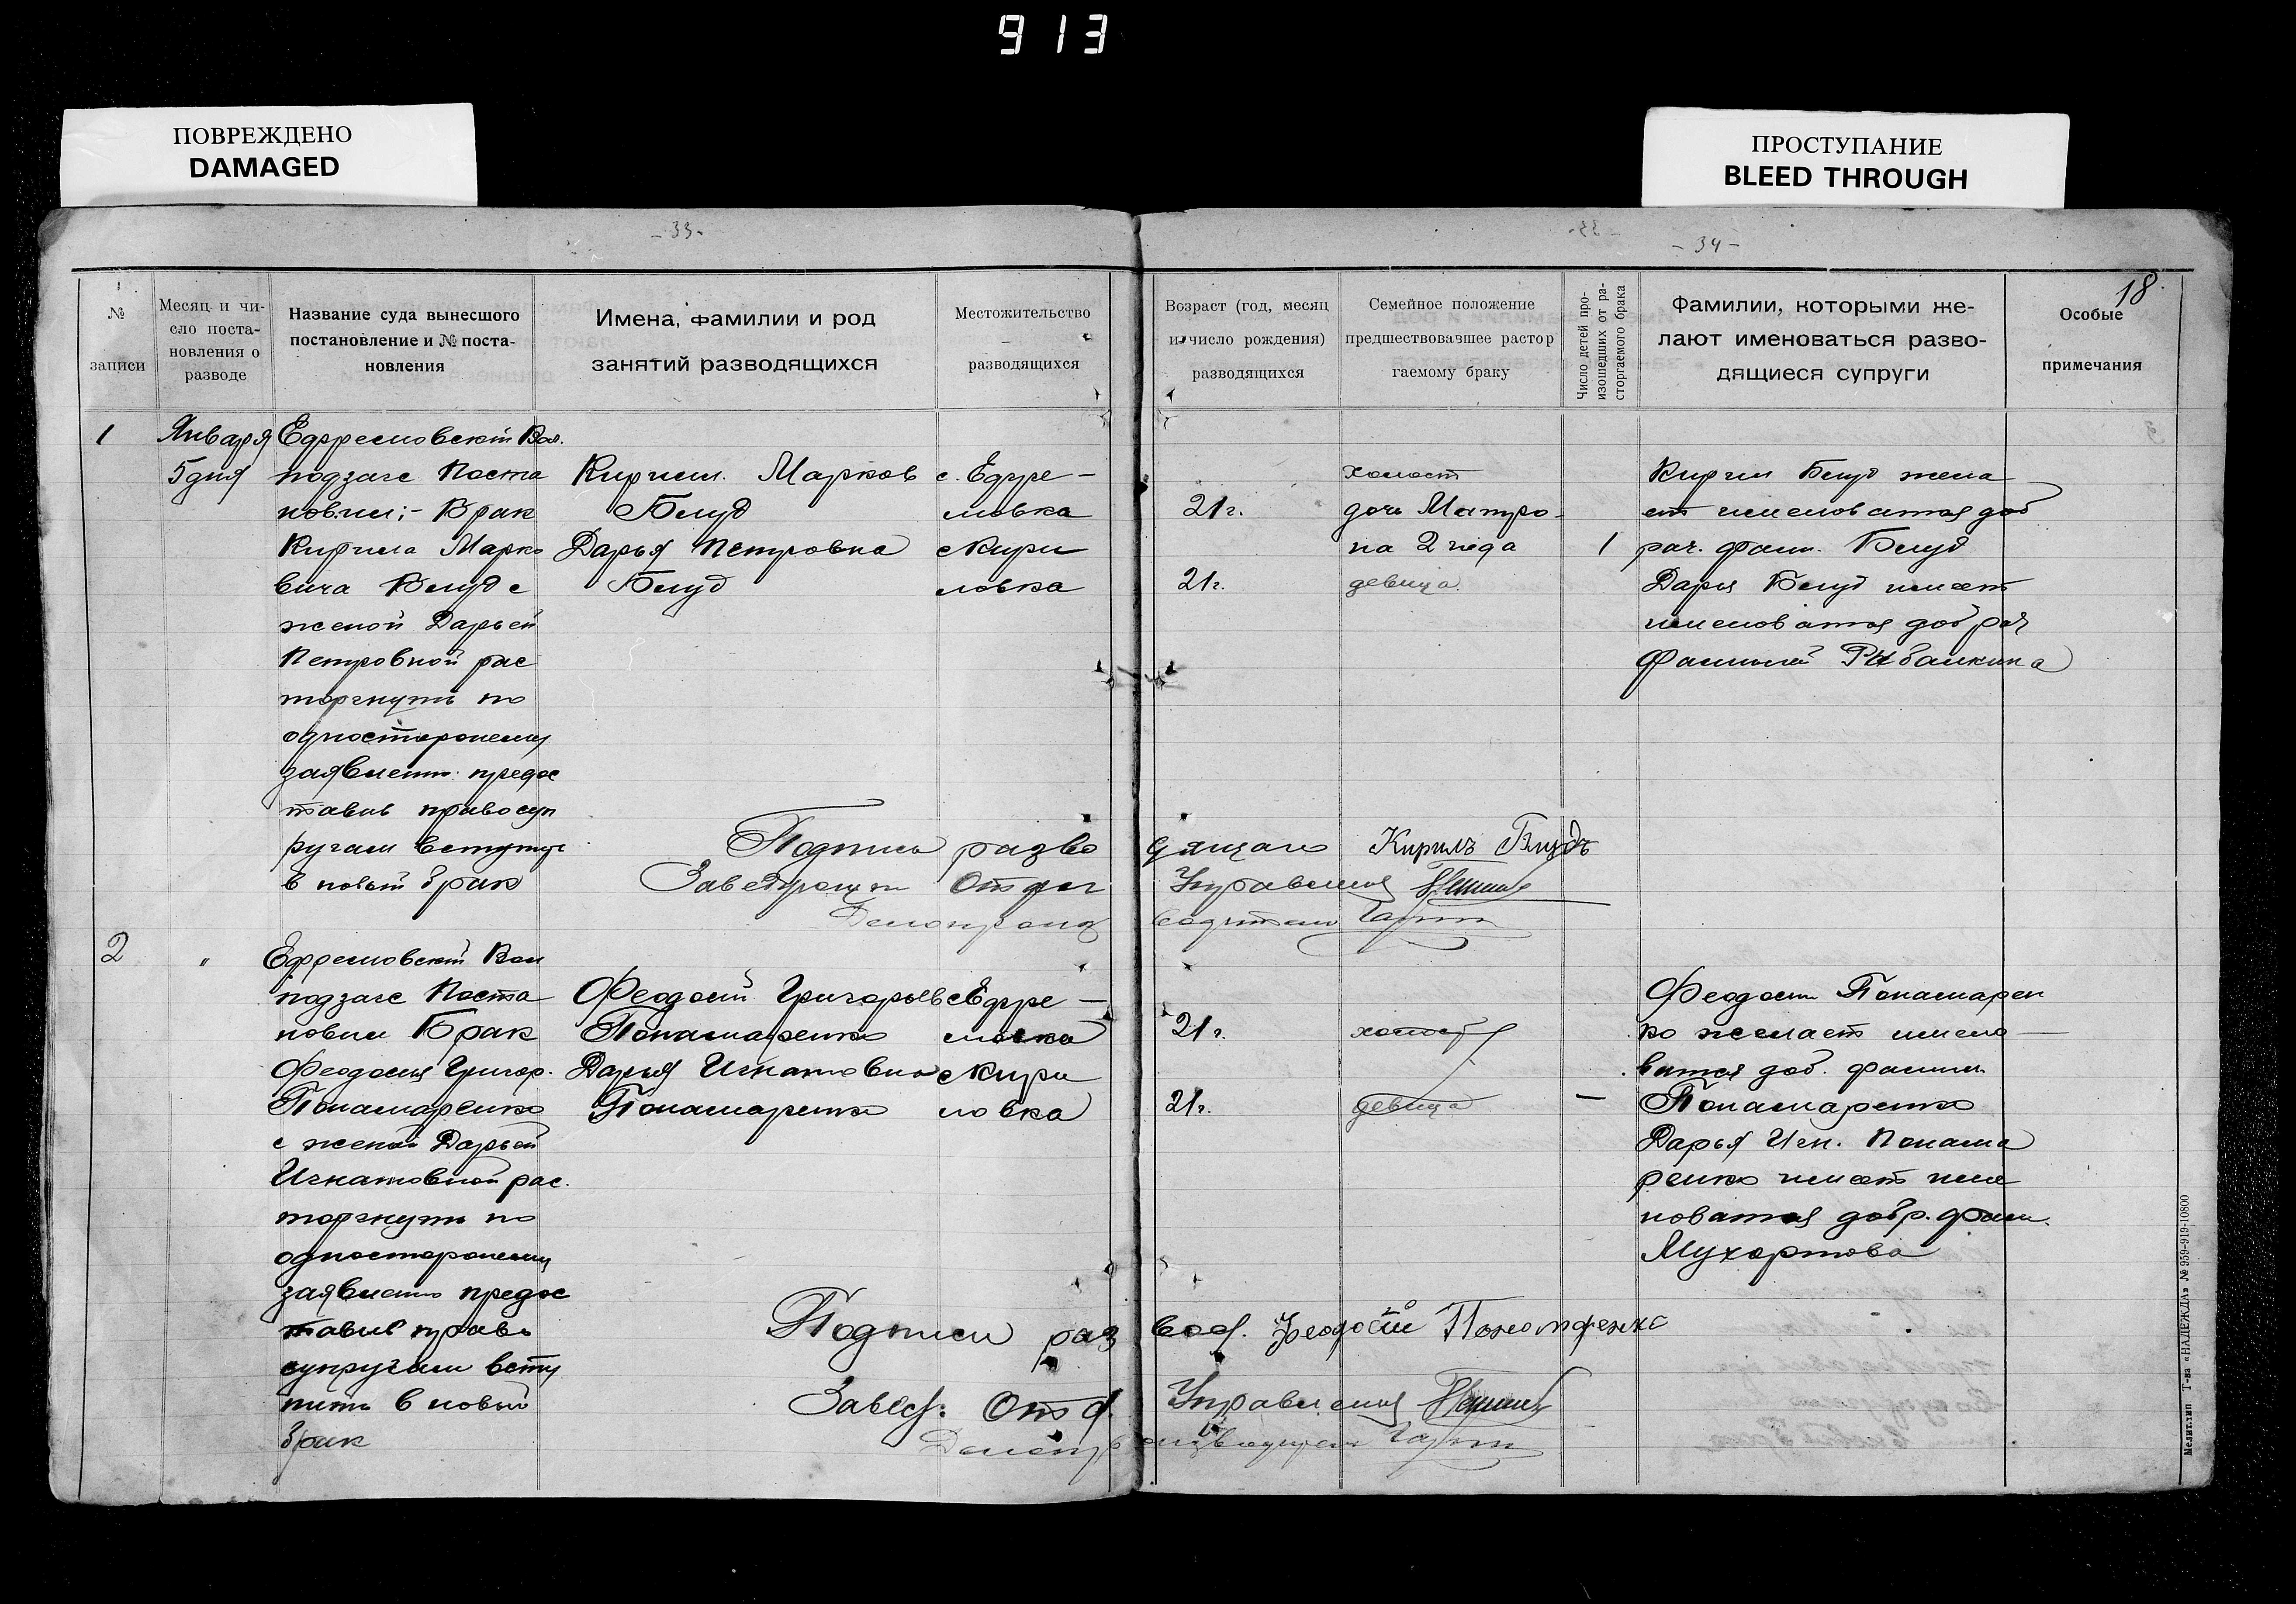 913
ПОВРЕЖДЕНО
DAMAGED
ПРОСТУПАНИЕ
BLEED THROUGH
- 33 -
- 34 -
18.
№ записи
Месяц и чи-
сло поста-
новления о
разводе
Название суда вынесшого
постановление и № поста-
новления
Имена, фамилии и род
занятий разводящихся
Местожительство
разводящихся
Возраст (год, месяц
и число рождения)
разводящихся
Семейное положение
предшествовавшее растор
гаемому браку
Число детей про-
изошедших от ра-
сторгаемого брака
Фамилии, которыми же-
лают именоваться разво-
дящиеся супруги
Особые
примечания
1
Января
5 дня
Ефремовский Вол.
подзагс Поста
новил:- Брак
Кирила Марко
вича Блуд с
женой Дарьей
Петровной рас
торгнуть по
одностороннему
заявлению предос
тавив право суп
ругам вступить
в новый брак
Кирилл Марков
Блуд
Дарья Петровна
Блуд
с. Ефре-
мовка
с Кири
ловка
21 г.
21 г.
холост
дочь Матро-
на 2 года
девица
1
Кирил Блуд жела
ет именоватся доб
рач. фам. Блуд
Дарья Блуд имеет
именоватся добрач
фамилией Рибалкина
Подпись разво дящаго Кирилъ Блудъ
Заведующий Отдел Управления
Делопроиз водитель
2
"
Ефремовский Вол
подзагс Поста
новил Брак
Феодосия Григор.
Понамаренко
с женой Дарьей
Игнатовной рас.
торгнуть по
одностороннему
заявлению предос
тавив право
супругам всту
пить в новый
брак
Феодосий Григорьев
Понамаренко
Дарья Игнатовна
Понамаренко
с Ефре-
мовка
с Кири
ловка
21 г.
21 г.
холост
девица
—
Феодосий Понамарен
ко желает имено-
ватся доб. фамил
Понамаренко
Дарья Игн. Понама
ренко имеет име
новатся добр. фам.
Мухортова
Подписи раз вод. Феодосий Пономаренко
Завед. Отд. Управления
Делопр оизводитель
Мелит.тип Т-ва «НАДЕЖДА» № 959-919-10800